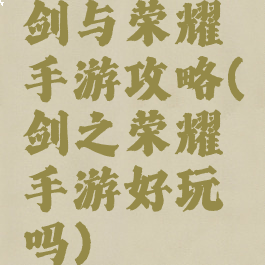 剑与荣耀
手游攻略(
剑之荣耀
手游好玩
吗)